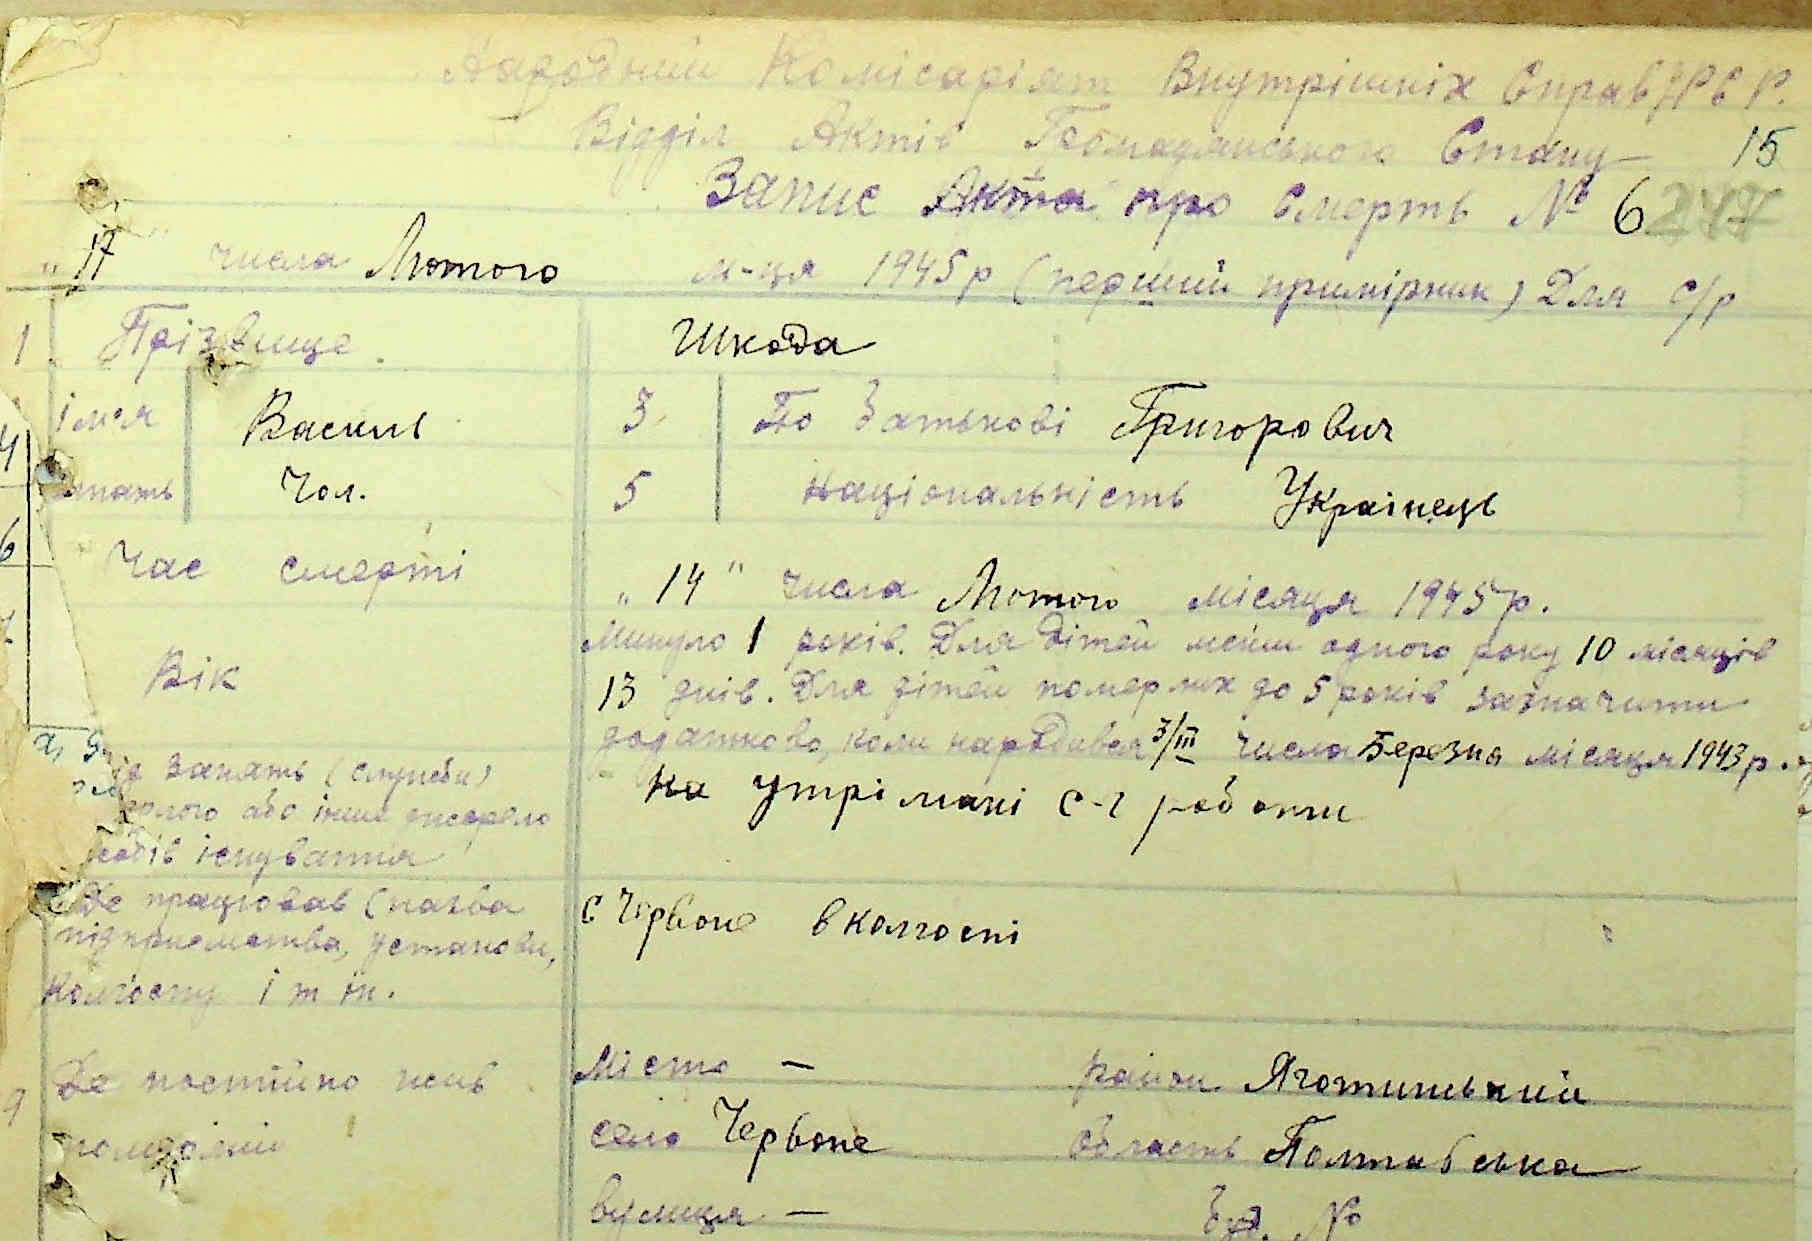 Народний Комісаріят Внутрішніх Справ УРСР.
Відділ Актів Громадянського Стану 15
Запис Акта про смерть № 6 247
„17" числа Лютого м-ця 1945р (перший примірник) Для с/р
1 Прізвище Шкода
імʼя Василь 3 По батькові Григорович
4 стать Чол. 5 Національність Украінець
6 Час смерті „14" числа Лютого місяця 1945р.
Минуло 1 років. Для дітей менш одного року 10 місяців
Вік 13 днів. Для дітей померлих до 5 років зазначити
додатково, коли народився 3/III числа Березня місяця 1943р.
занять (служби) на утрімані с-г роботи
або інше джерело
існування
Де працював (назва с Червоне в колгоспі
підприємства, установи,
колгоспу і т ін.
9 Де постійно жив Місто — район Яготинський
село Червоне область Полтавська
вулиця — буд. №